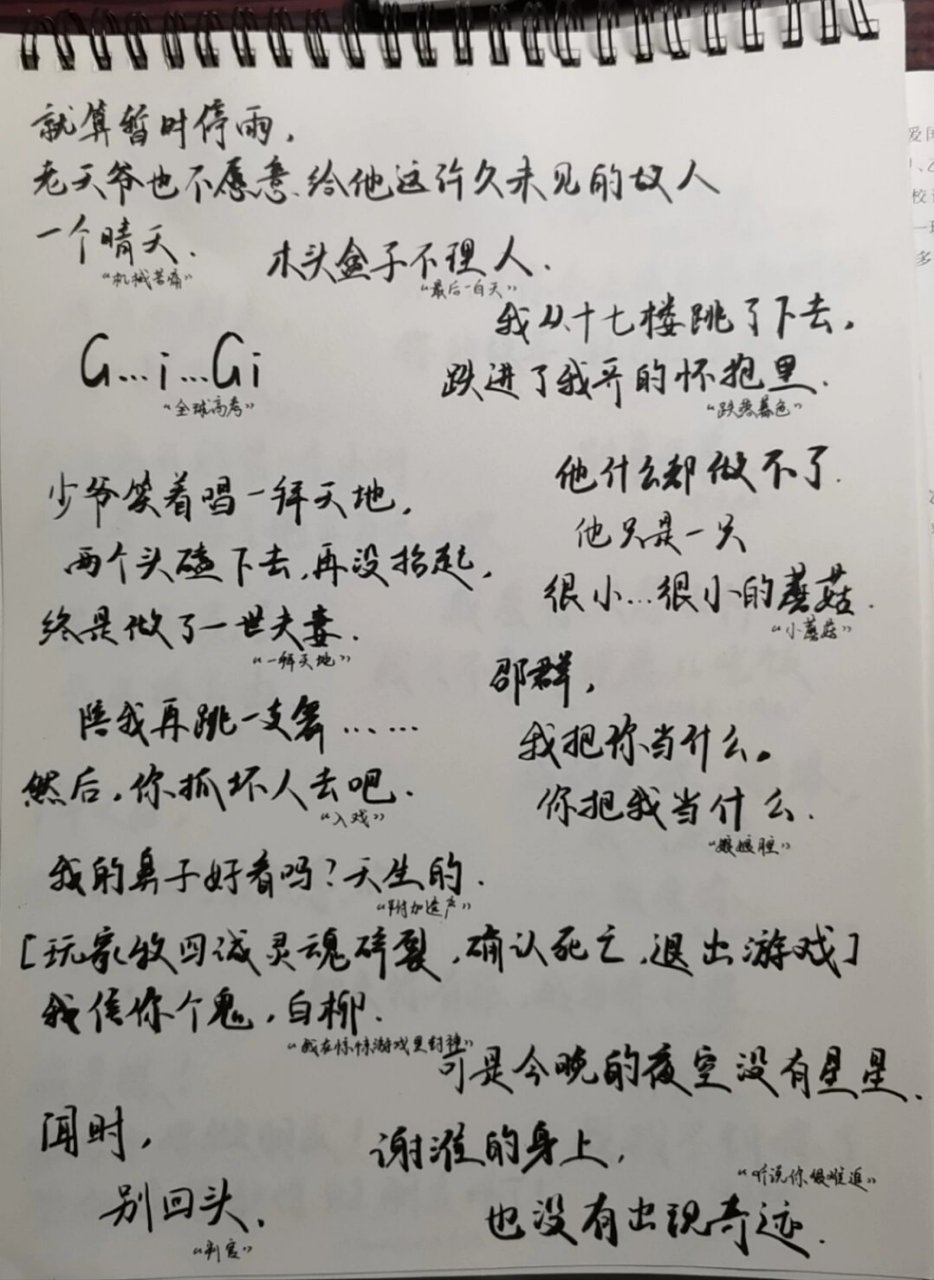 就算暂时停雨，
老天爷也不愿意给他这许久未见的故人
一个晴天.
“机械苦痛”
木头盒子不理人.
“最后一白天”
我从十七楼跳了下去，
跌进了我哥的怀抱里.
“跌落暮色”
G...i...Gi
“全球高考”
他什么都做不了.
他只是一只
很小...很小的蘑菇.
“小蘑菇”
少爷笑着唱一拜天地，
两个头磕下去，再没抬起，
终是做了一世夫妻.
“一拜天地”
邵群，
我把你当什么。
你把我当什么.
“娘娘腔”
陪我再跳一支舞……
然后，你抓坏人去吧.
“入戏”
我的鼻子好看吗？天生的.
“附加遗产”
[玩家牧四诚灵魂碎裂，确认死亡，退出游戏]
我信你个鬼，白柳.
“我在惊悚游戏里封神”
可是今晚的夜空没有星星.
谢淮的身上，
也没有出现奇迹.
“听说你很难追”
闻时，
别回头.
“判官”
爱国
校
一
多